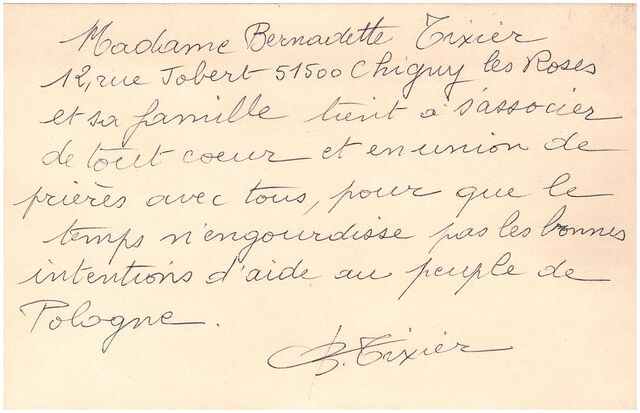 Madame Bernadette Tixier
12, rue Jobert 51500 Chigny les Roses
et sa famille tient à s'associer
de tout coeur et en union de
prières avec tous, pour que le
temps n'engourdisse pas les bonnes
intentions d'aide au peuple de
Pologne.
B. Tixier